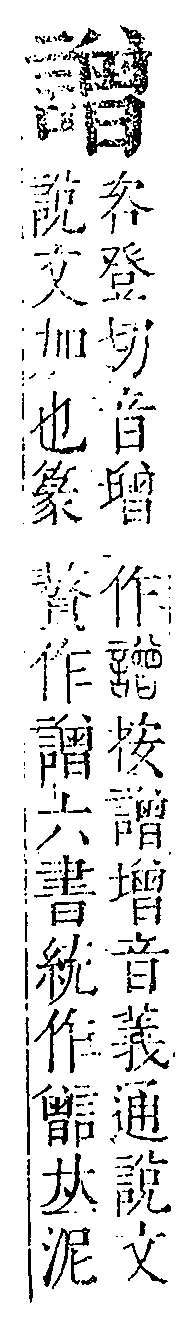 譄
咨登切音增
說文加也篆
作譄按譄增音義通說文
贅作譄六書統作𠀤泥